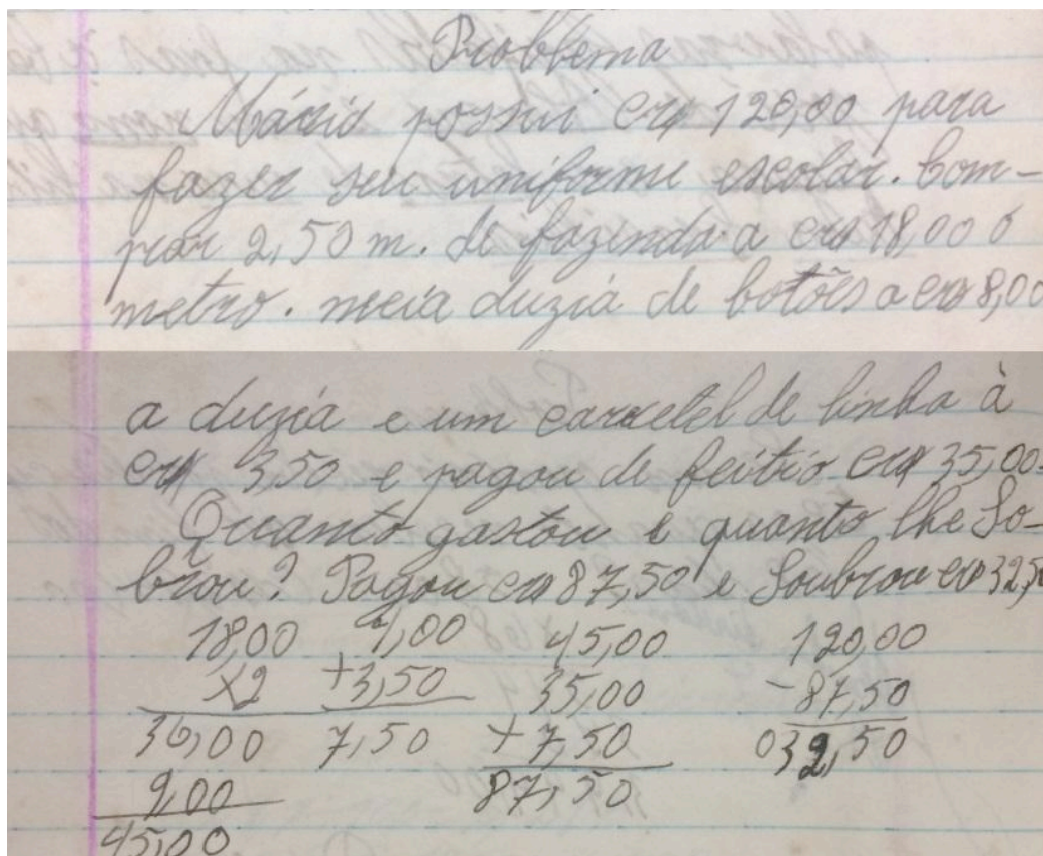 Problema
Márcio possui cr$ 120,00 para
fazer seu uniforme escolar. Com-
prar 2,50 m. de fazenda a cr$ 18,00 o
metro. meia duzia de botões a cr$ 8,00
a duzia e um carretel de linha à
cr$ 3,50 e pagou de feitio cr$ 35,00.
Quanto gastou e quanto lhe So-
brou? Pagou cr$ 87,50 e Soubrou cr$ 32,50
18,00 4,00 45,00 120,00
x2 +3,50 35,00 -87,50
36,00 7,50 +7,50 032,50
9,00 87,50
45,00